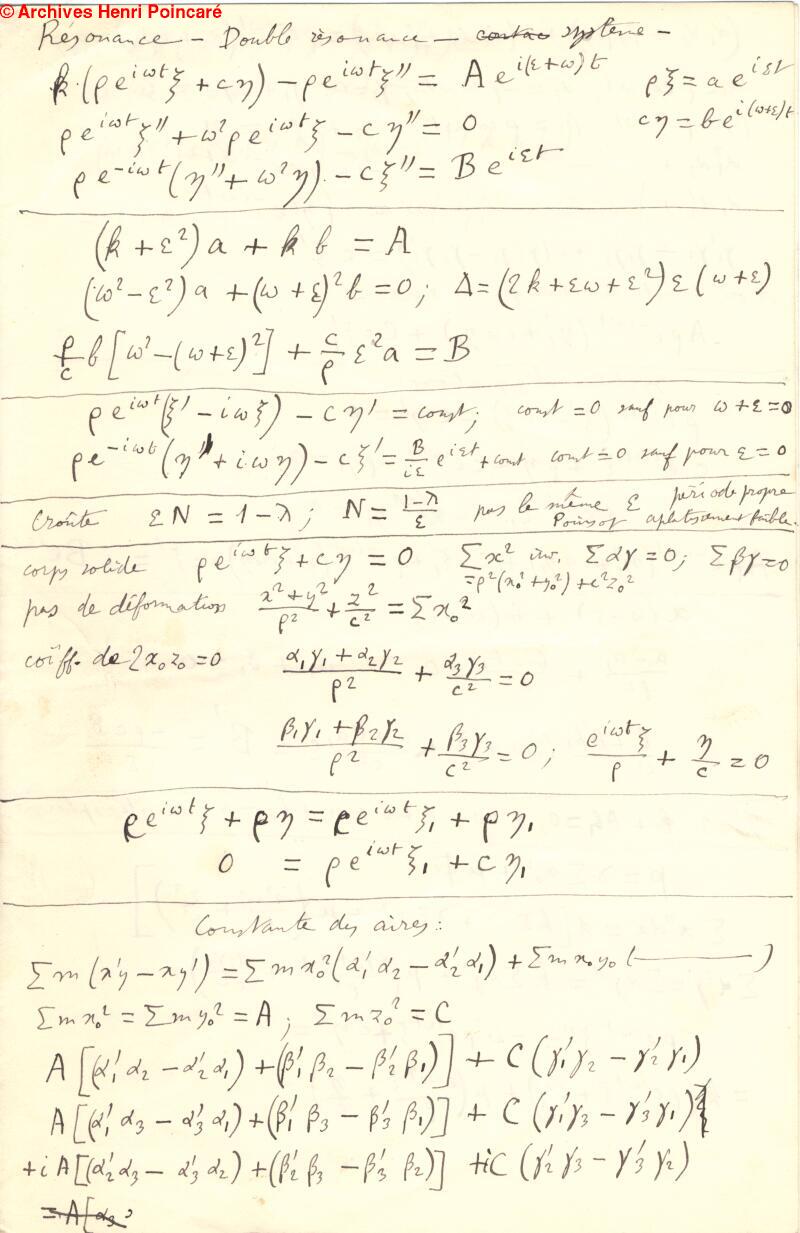 © Archives Henri Poincaré
Résonance – Double résonance – système –
k(ρe^{iωt}ξ + cη) – ρe^{iωt}ξ'' = A e^{i(ε+ω)t} ρξ = a e^{iεt}
ρe^{iωt}ξ'' + ω²ρe^{iωt}ξ – cη'' = 0 cη = b e^{i(ω+ε)t}
ρe^{-iωt}(η'' + ω²η) – cξ'' = B e^{iεt}
(k + ε²)a + k b = A
(ω² – ε²)a + (ω + ε)² b = 0; Δ = (2k + εω + ε²) ε (ω + ε)
ρ/c b[ω² – (ω+ε)²] + c/ρ ε² a = B
ρe^{iωt}(ξ' – iωξ) – cη' = const; const = 0 sauf pour ω + ε = 0
ρe^{-iωt}(η' + iωη) – cξ' = B/iε e^{iεt} + const const = 0 sauf pour ε = 0
Croûte εN = 1 – λ; N = (1–λ)/ε pas le même ε période propre
Poinsot aplatissement faible.
corps solide ρe^{iωt}ξ + cη = 0 Σx² inv. Σαγ = 0; Σβγ = 0
= ρ²(x₀² + y₀²) + c²z₀²
pas de déformation (x² + y²)/ρ² + z²/c² = Σx₀²
coëff. de 2x₀z₀ = 0 (α₁γ₁ + α₂γ₂)/ρ² + α₃γ₃/c² = 0
(β₁γ₁ + β₂γ₂)/ρ² + β₃γ₃/c² = 0; e^{iωt}ξ/ρ + η/c = 0
ρe^{iωt}ξ + ρη = ρe^{iωt}ξ₁ + ρη₁
0 = ρe^{iωt}ξ₁ + cη₁
Constante des aires:
Σm(x'y – xy') = Σmx₀²(α'₁α₂ – α'₂α₁) + Σmx₀y₀(———)
Σmx₀² = Σmy₀² = A; Σmz₀² = C
A[(α'₁α₂ – α'₂α₁) + (β'₁β₂ – β'₂β₁)] + C(γ'₁γ₂ – γ'₂γ₁)
A[(α'₁α₃ – α'₃α₁) + (β'₁β₃ – β'₃β₁)] + C(γ'₁γ₃ – γ'₃γ₁)
+ i A[(α'₂α₃ – α'₃α₂) + (β'₂β₃ – β'₃β₂)] + iC(γ'₂γ₃ – γ'₃γ₂)
= A[α₃